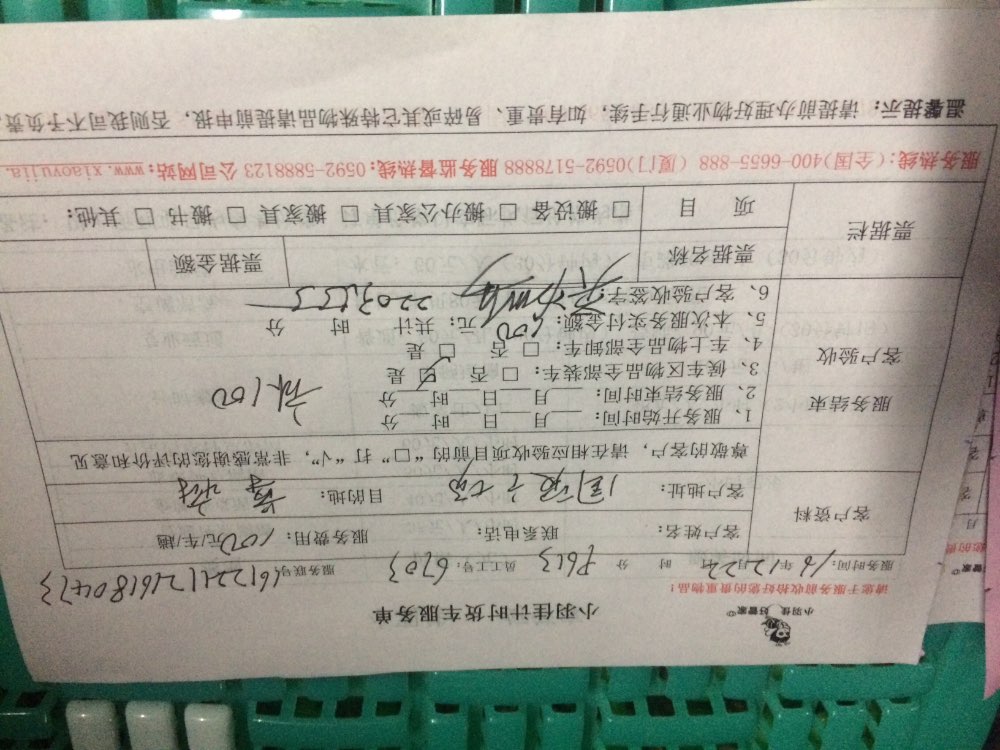 小羽佳 好管家
小羽佳计时货车服务单
请您于服务前收拾好您的贵重物品！
服务时间：16年12月22日 时 分 P613 员工工号：6703 服务联号
客户资料
客户姓名： 联系电话： 服务费用：100元/车/趟
客户地址： 目的地：
尊敬的客户，请在相应验收项目前的“□”打“√”，非常感谢您的评价和意见
服务结束
客户验收
1、服务开始时间： 月 日 时 分
2、服务结束时间： 月 日 时 分
3、候车区物品全部装车：□ 否 ☑ 是
4、车上物品全部卸车：□ 否 □ 是
5、本次服务实付金额：100元；共计 时 分
6、客户验收签字：
票据栏
票据名称 票据金额
项 目 □ 搬设备 □ 搬办公家具 □ 搬家具 □ 搬书 □ 其他：
服务热线：(全国)400-6655-888 (厦门)0592-5178888 服务监督热线：0592-5888123 公司网站：www.xiaoyujia.
温馨提示：请提前办理好物业通行手续，如有贵重、易碎或其它特殊物品请提前申报，否则我司不予负责